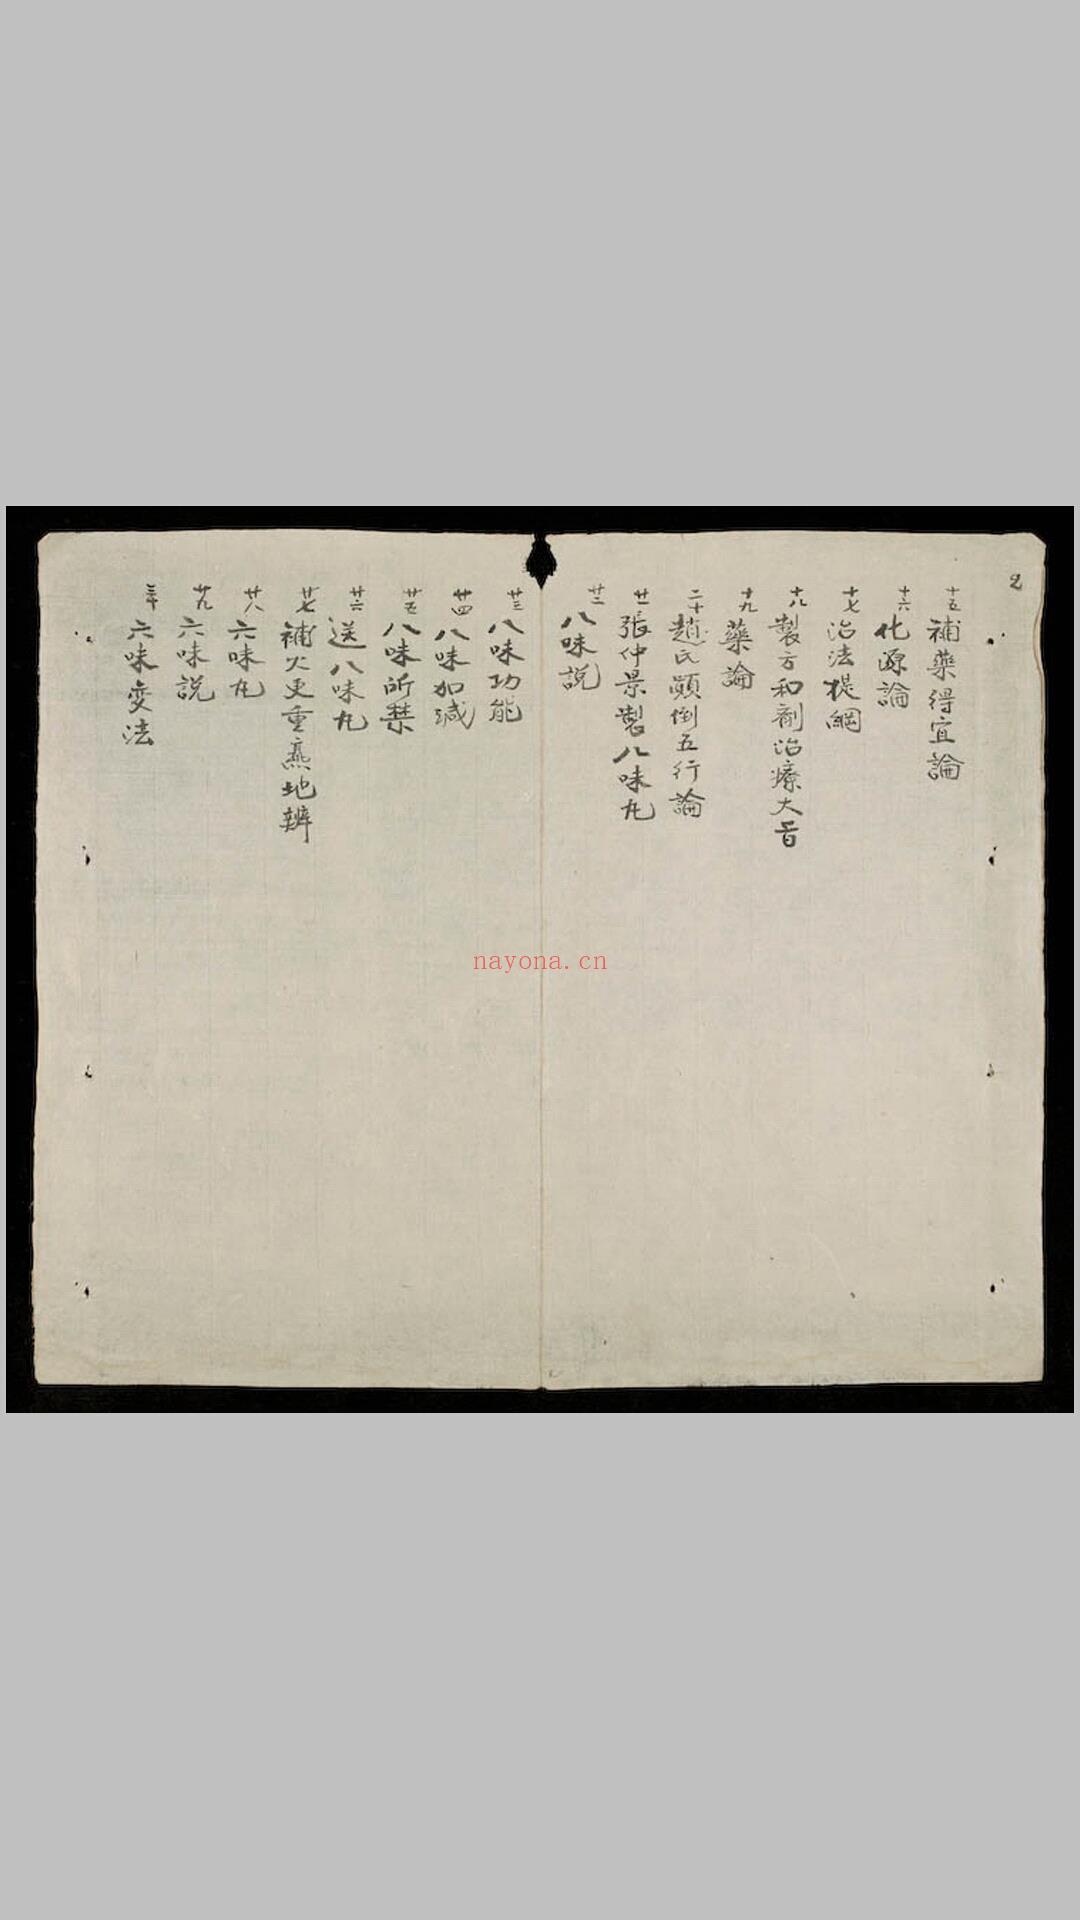 2
十五 補藥得宜論
十六 化源論
十七 治法提綱
十八 製方和劑治療大旨
十九 藥論
二十 趙氏顛倒五行論
廿一 張仲景製八味丸
廿二 八味説
廿三 八味功能
廿四 八味加減
廿五 八味所禁
廿六 送八味丸
廿七 補火更重熹地辨
廿八 六味丸
廿九 六味説
三十 六味变法
nayona.cn